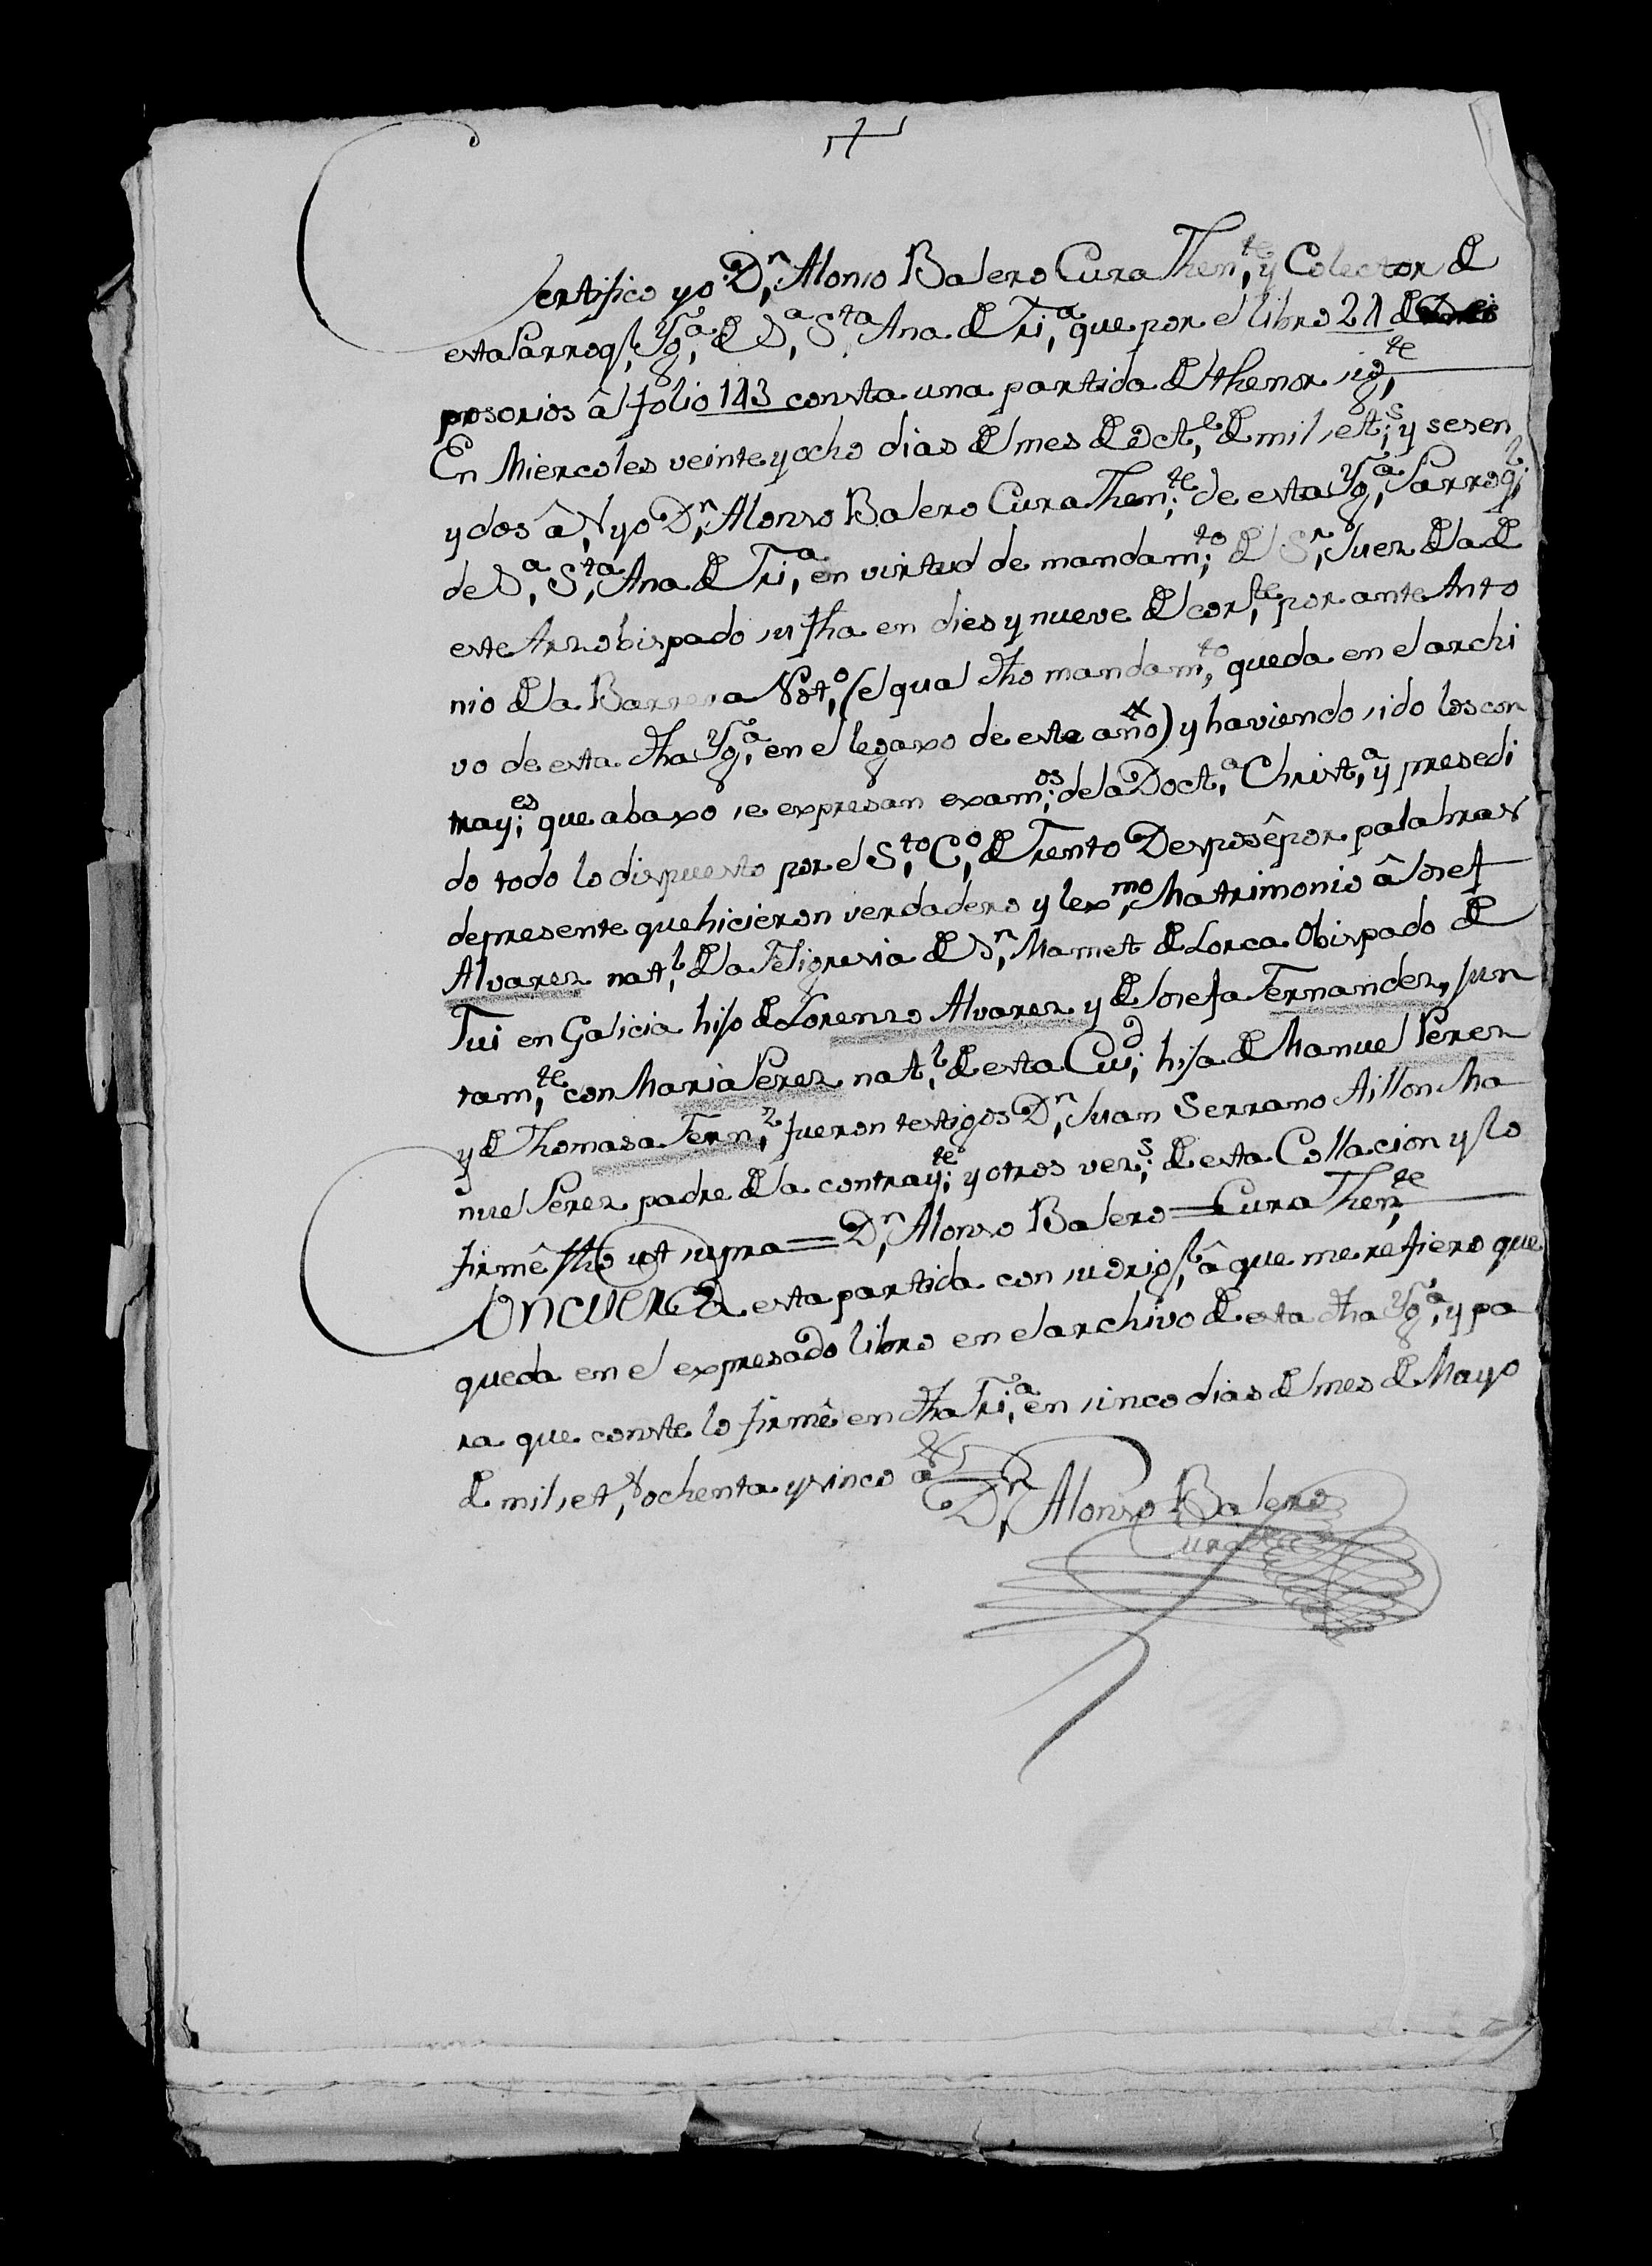 Certifico yo Dn, Alonso Balero Cura Then,te y Colector de
esta Parroql, Yga, de Sa, Sta, Ana de Tria, que por el libro 21 de
posorios â folio 143 consta una partida del thenor sigte
En Miercoles veinte y ocho dias del mes de Octe, de mil sets; y sesen
y dos â,s yo Dn, Alonso Balero Cura Then;te de esta Yga, Parroql,
de Sa, Sta, Ana de Tria, en virtud de mandam;to del Sr, Juez de la de
este Arzobispado su fha en dies y nueve del corrte, por ante Anto
nio de la Barrera Noto, (el qual dho mandamto, queda en el archi
vo de esta dha Yga, en el legaxo de este año) y haviendo sido los con
tray;es que abaxo se expresan exam;os de la Docta, Christa, y presedi
do todo lo dispuesto por el Sto, Co, de Trento Desposê por palabras
de presente que hicieron verdadero y lexmo, Matrimonio â Josef
Alvarez natl, de la Feligresia de Sn, Mamet de Lorca Obispado de
Tui en Galicia hijo de Lorenzo Alvarez y de Josefa Fernandez, jun
tam,te con Maria Perez natl, de esta Ciud; hija de Manuel Perez
y de Thomasa Fernz, fueron testigos Dn, Juan Serrano Aillon Ma
nuel Perez padre de la contray;te y otros vers; de esta Collacion y lo
firmê fho ut supra = Dn, Alonso Balero = Cura Then,te
Concuerda esta partida con su origl, â que me refiero que
queda en el expresado libro en el archivo de esta dha Yga, y pa
ra que conste lo firmê en dha Tria, en sinco dias del mes de Mayo
de mil set,s ochenta y sinco as
Dn, Alonso Balero
Cura